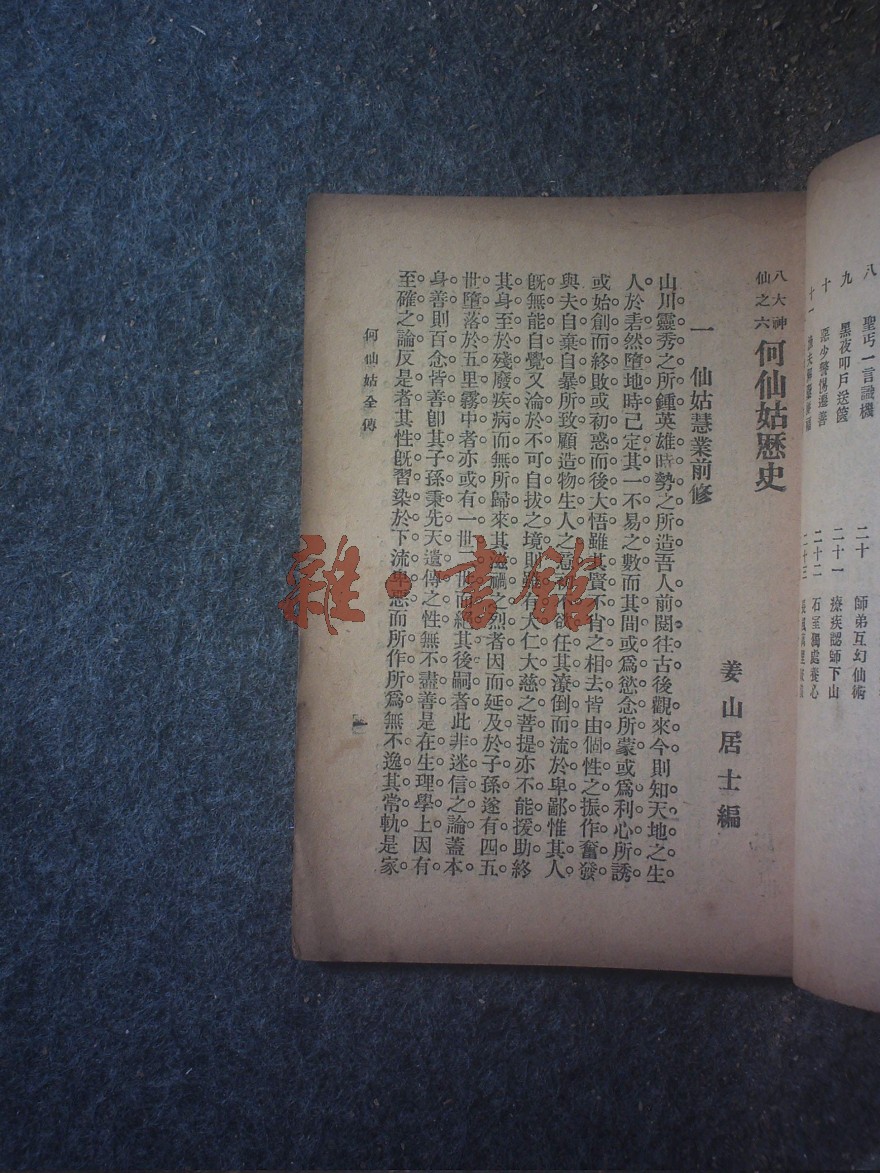 八
聖丐一言識機
九
黑夜叩戶送篋
十
惡少聲傷濫善
十一
二十
師弟互幻仙術
二十一
療疾認師下山
二十二
石室獨處養心
二十三
八大神
仙之六
何仙姑歷史
姜山居士編
一 仙姑慧業前修
山川靈秀之所鍾英雄時勢之所造吾人前閱往古後觀來今則知天地之生
人於砉然墮地時已定其一不易之數而其間或爲慾念所蒙或爲利心所誘
或始創而終敗或初惑而後大悟雖其賢不肖之相去皆由個性之振作奮發
與夫自棄自暴所致顧造物生人之初不欲任其潦倒而流於卑鄙惟其人
旣無能自覺又淪於不可自拔之境則雖有大仁大慈之菩提亦不能援助終
其身至於殘廢疾病而無所歸來其滋禍之烈者因而延及於子孫遂有四五
世墮落於五里霧中者亦或有一世二世而絕其後嗣者此非迷信之論蓋本
身善則百念皆善卽其子孫秉先天遺傳之性無不盡善是在生理學上因有
至確之論反是者其性旣習染於下流卑惡而所作所爲無不逸其常軌是家
何仙姑全傳
一
雜·書館